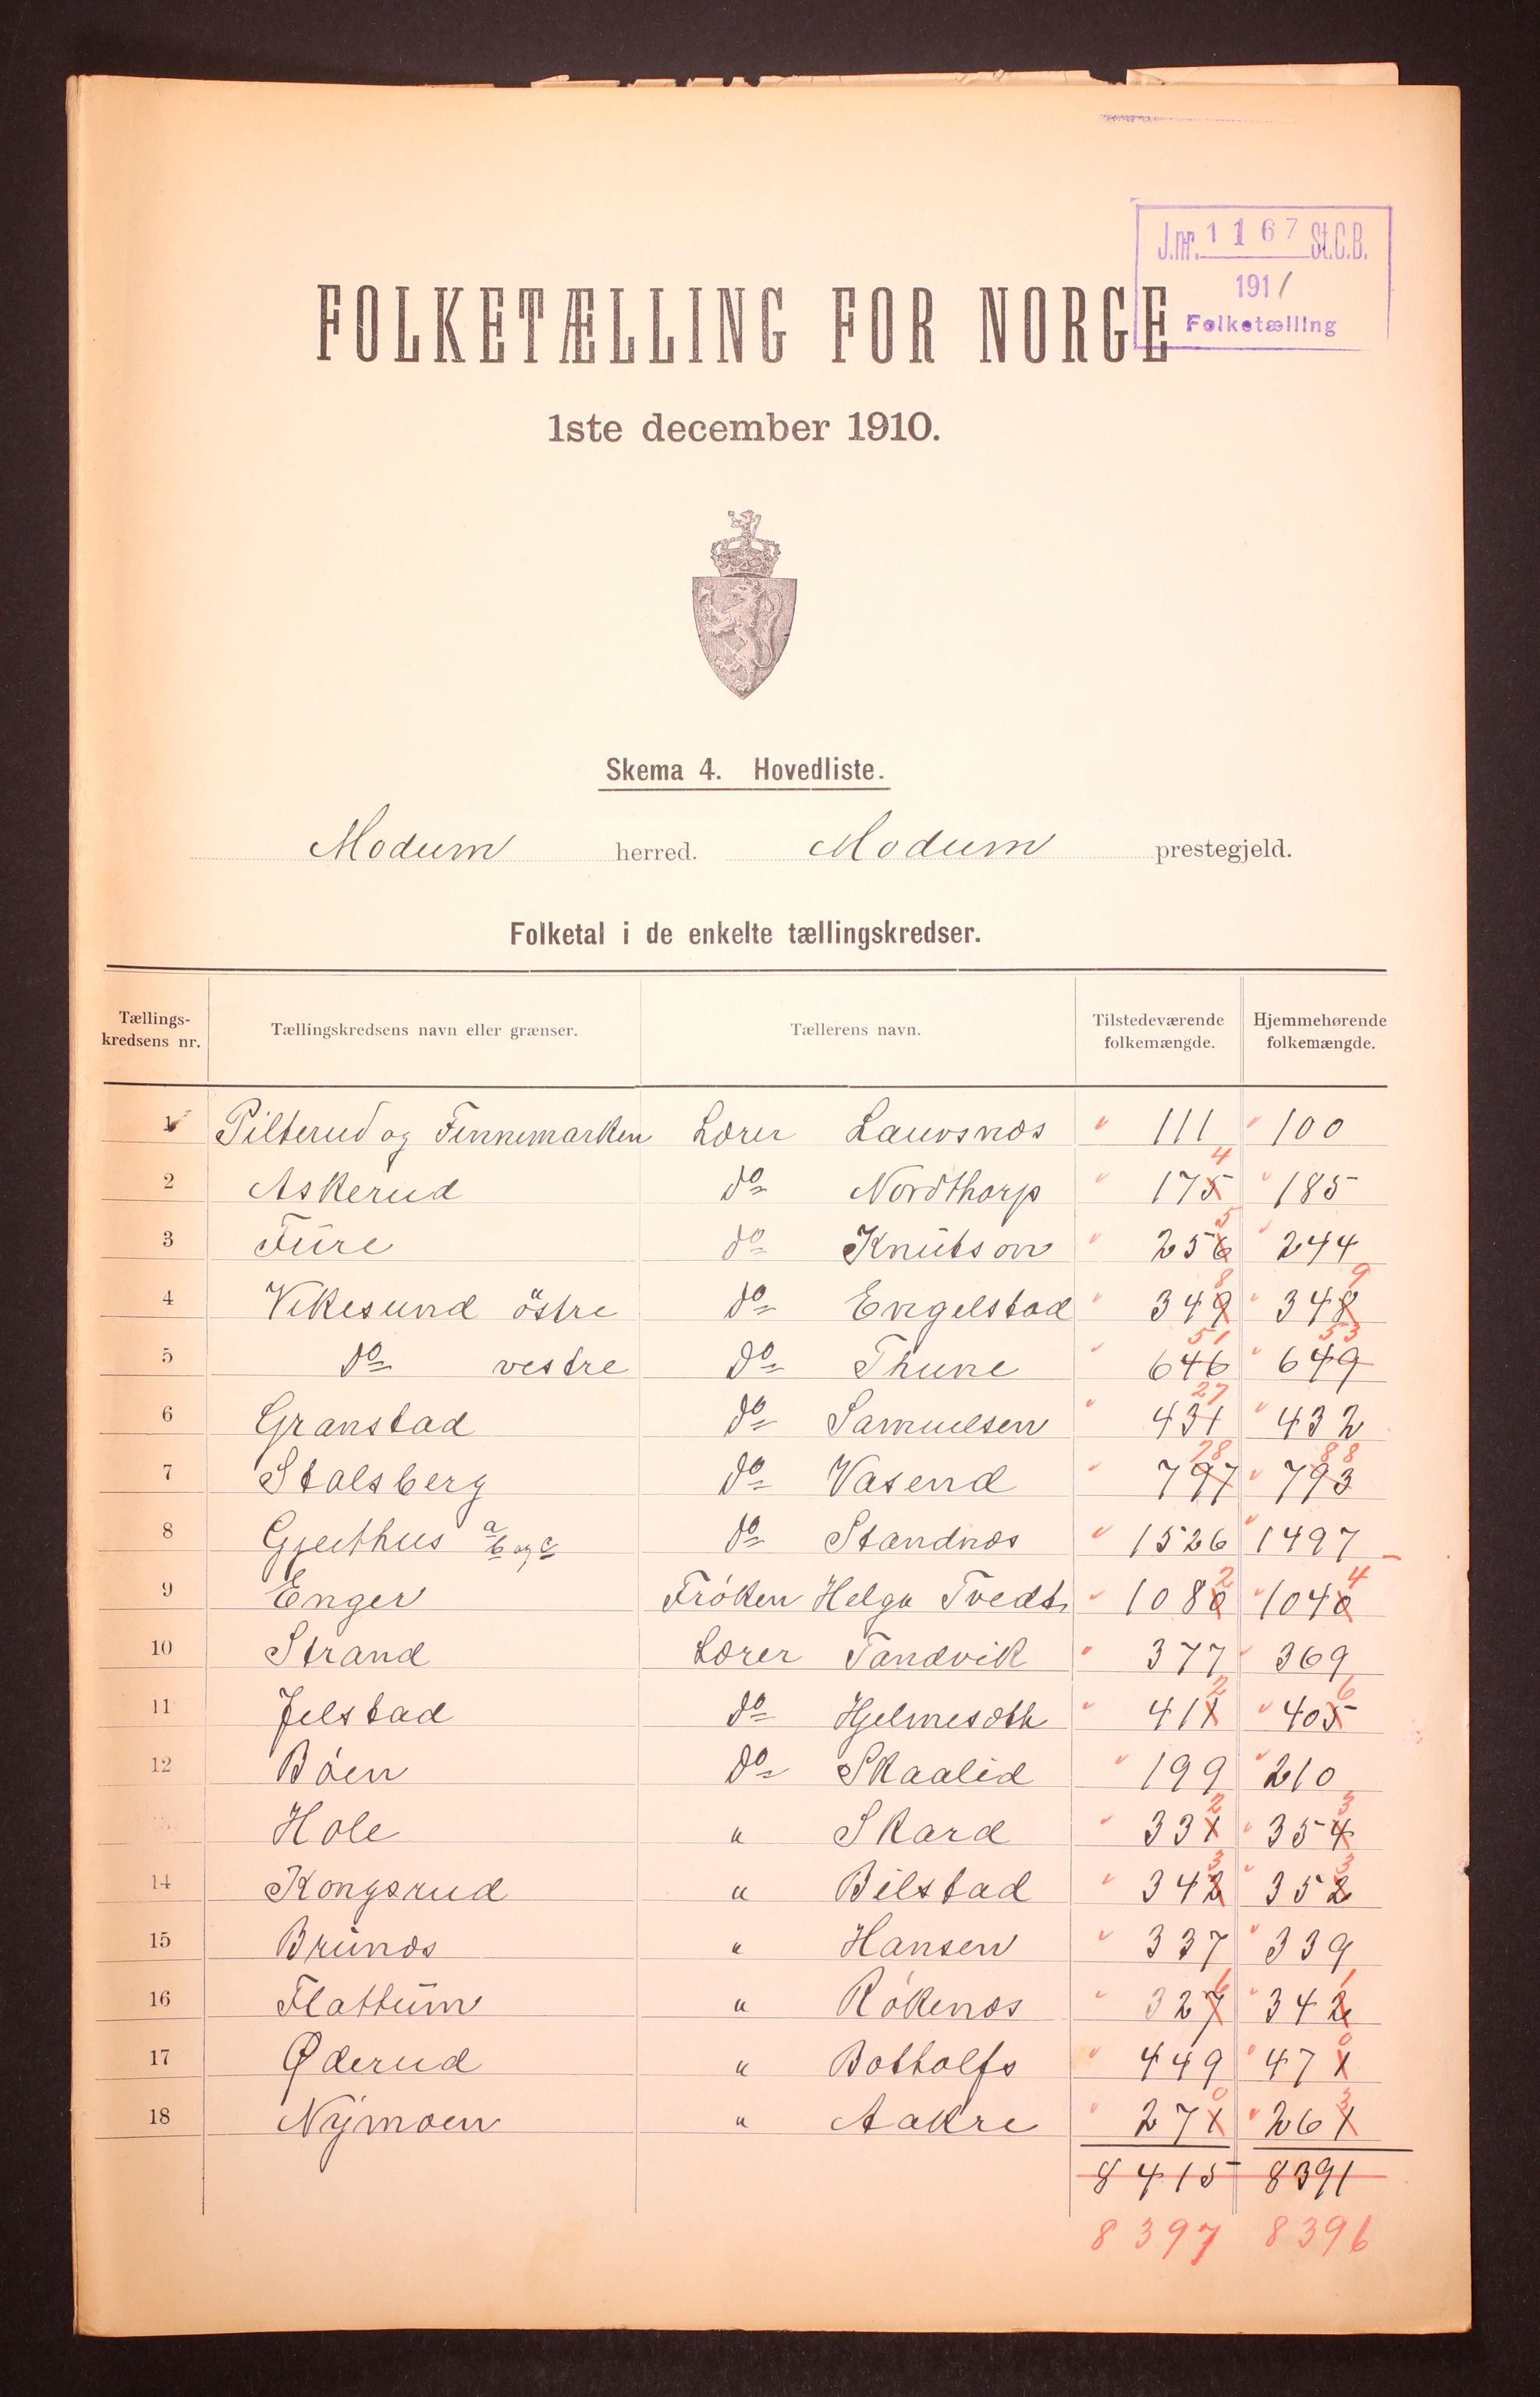 J.nr. 1167 St.C.B.
1911
Folketælling
FOLKETÆLLING FOR NORGE
1ste december 1910.
Skema 4. Hovedliste.
Modum herred. Modum prestegjeld.
Folketal i de enkelte tællingskredser.
Tællings-kredsens nr. Tællingskredsens navn eller grænser. Tællerens navn. Tilstedeværende folkemængde. Hjemmehørende folkemængde.
1 Pilterud og Finnemarken Lærer Lauvsnæs 111 100
4
2 Askerud do Nordthorp 175 185
5
3 Fure do Knutson 256 244
8 9
4 Vikesund östre do Engelstad 349 348
51 53
5 do vestre do Thune 646 649
27
6 Granstad do Samuelsen 431 432
78 88
7 Stalsberg do Vasend 797 793
8 Gjeithus a b og c do Standnæs 1526 1497
2 4
9 Enger Fróken Helga Tvedt 1080 1040
10 Strand Lærer Tandvik 377 369
2 6
11 Jelstad do Hjelmesæth 411 405
12 Bóen do Skaalid 199 210
2 3
Hole " Skard 331 354
3 3
14 Kongsrud " Bilstad 342 352
15 Brunæs " Hansen 337 339
6 1
16 Flattum " Rókenæs 327 342
0
17 Øderud " Botholfs 449 471
0 3
18 Nymoen " Aakre 271 261
8415 8391
8397 8396